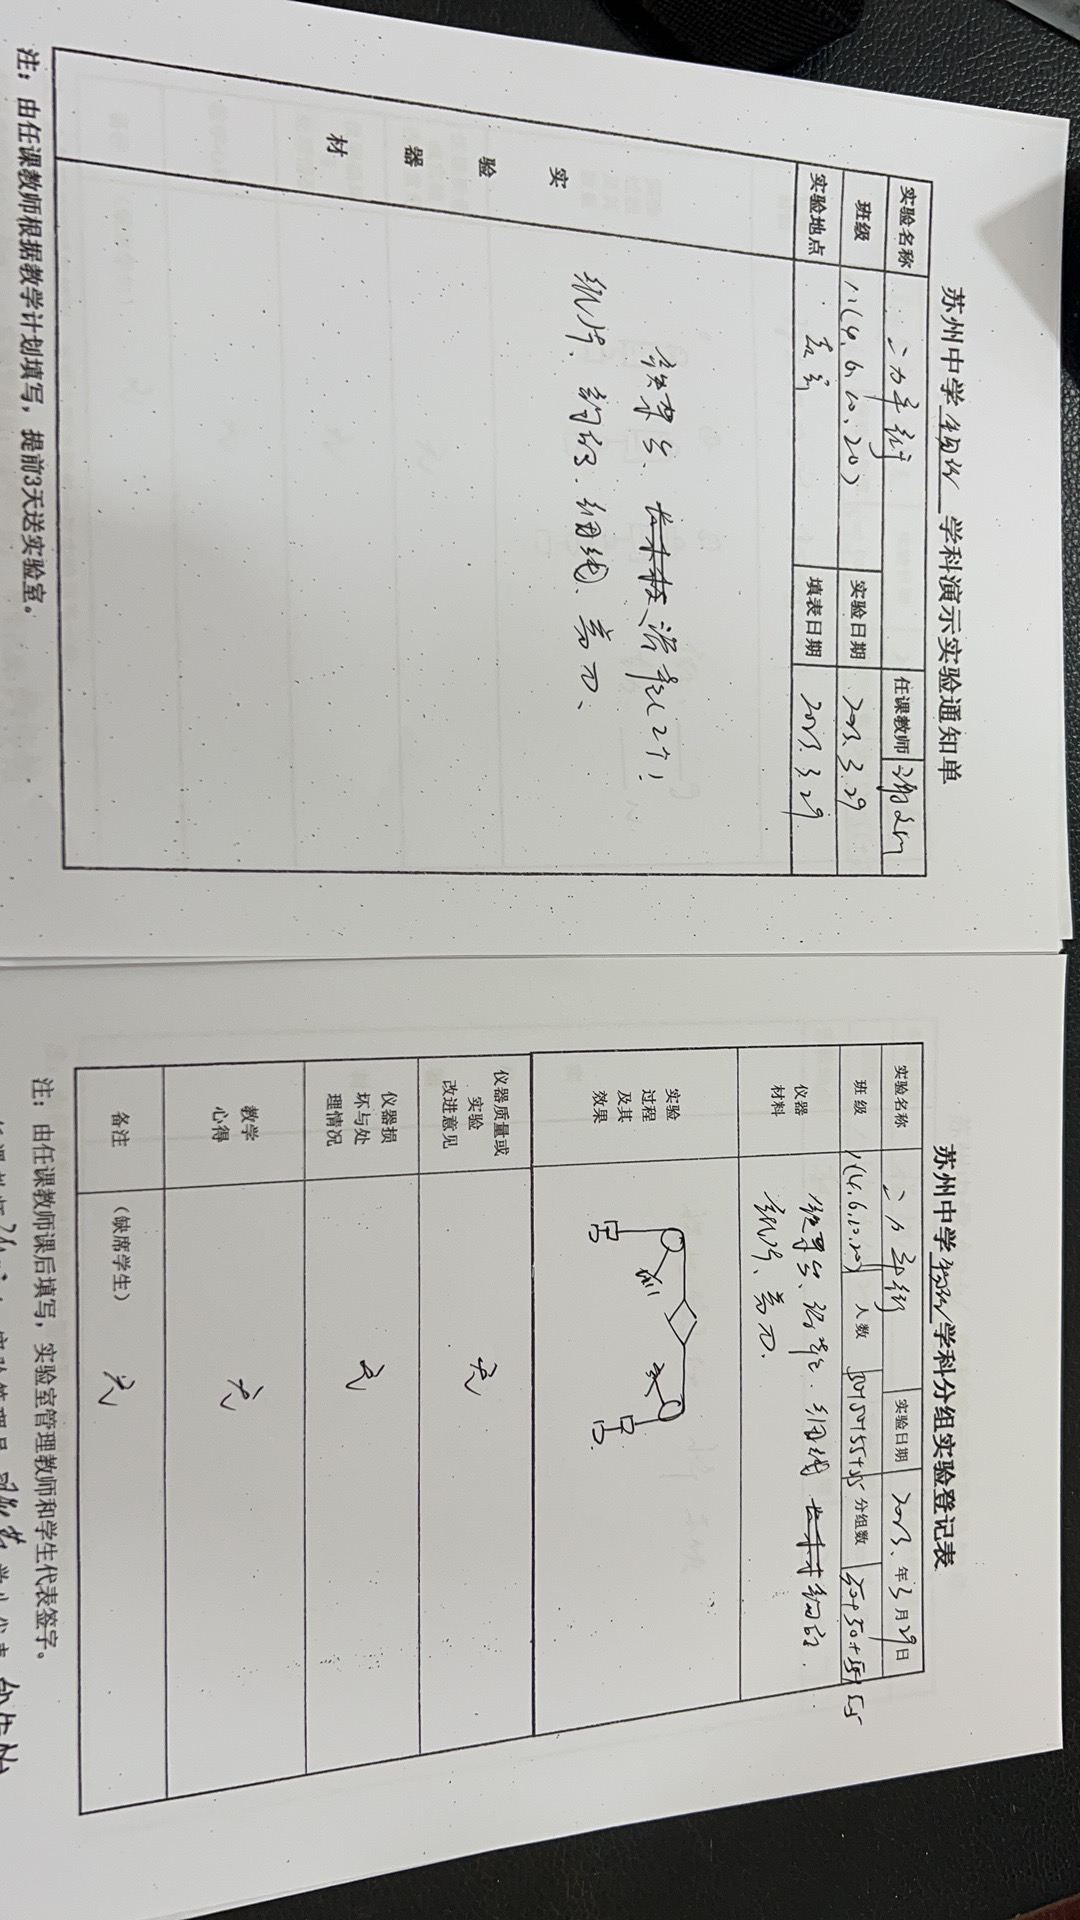 苏州中学物理学科演示实验通知单
实验名称 二力平衡 任课教师
班级 八(4.6.10.20) 实验日期 2023.3.29
实验地点 教室 填表日期 2023.3.29
实验器材
铁架台、滑轮(2个)
纸片、钩码、细线、剪刀、
注：由任课教师根据教学计划填写，提前3天送实验室。
苏州中学物理学科分组实验登记表
实验名称 二力平衡 实验日期 2023.年3月29日
班级 八(4.6.10.20) 人数 50+50+55+55 分组数 50+50+55+55
仪器材料 铁架台、滑轮、细线 钩码、
纸片、剪刀、
实验过程及其效果
仪器质量或实验改进意见 无
仪器损坏与处理情况 无
教学心得 无
备注 (缺席学生) 无
注：由任课教师课后填写，实验室管理教师和学生代表签字。